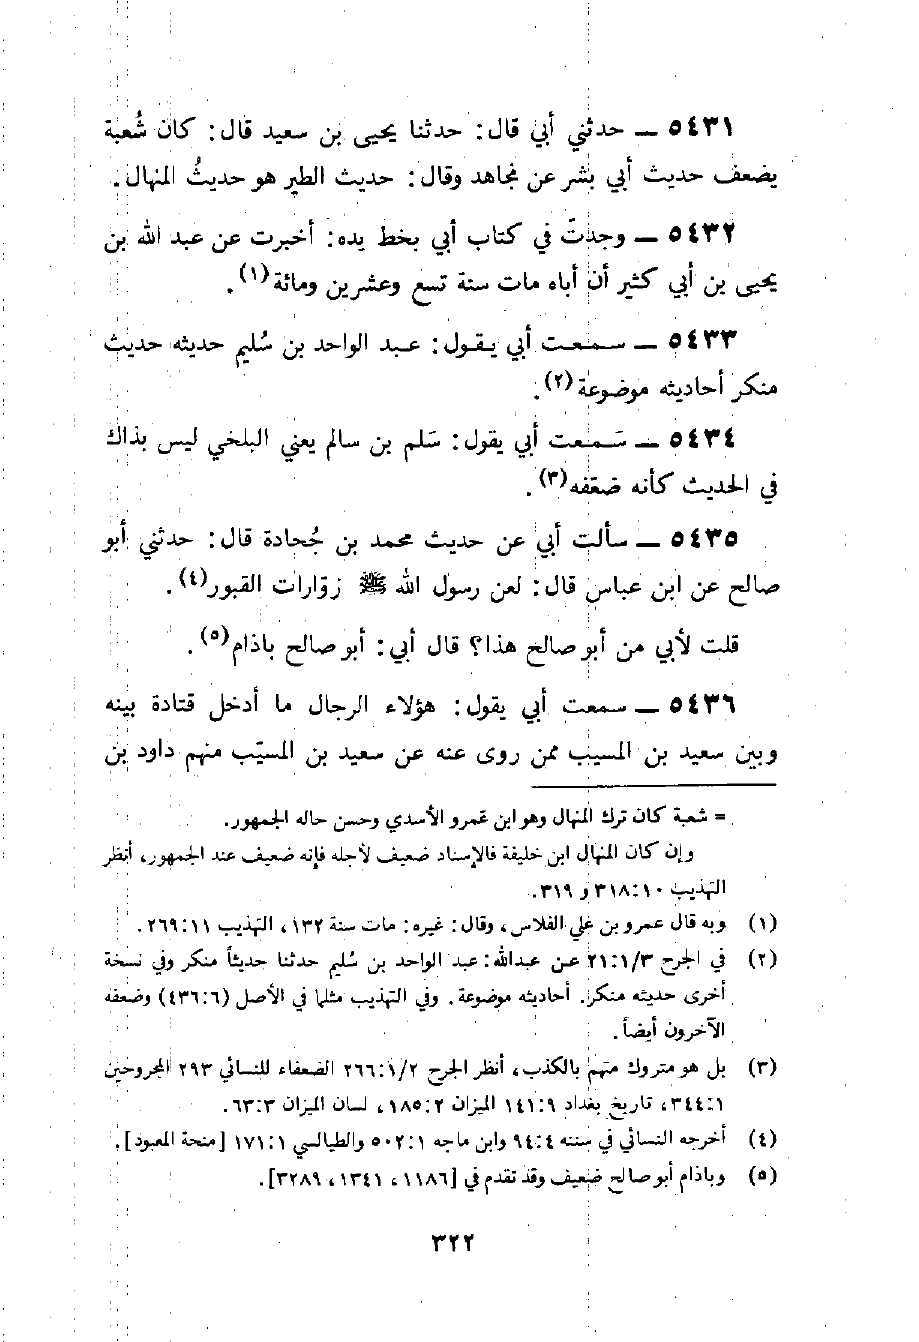 ٥٤٣١ ــ حدثني أبي قال: حدثنا يحيى بن سعيد قال: كان شُعبة
يضعف حديث أبي بشر عن مجاهد وقال: حديث الطير هو حديثُ المنهال.
٥٤٣٢ ــ وجدتّ في كتاب أبي بخط يده: أخبرت عن عبد الله بن
يحيى بن أبي كثير أن أباه مات سنة تسع وعشرين ومائة(١).
٥٤٣٣ ــ سمعت أبي يقول: عبد الواحد بن سُليم حديثه حديث
منكر أحاديثه موضوعة(٢).
٥٤٣٤ ــ سَمعت أبي يقول: سَلم بن سالم يعني البلخي ليس بذاك
في الحديث كأنه ضعّفه(٣).
٥٤٣٥ ــ سألت أبي عن حديث محمد بن جُحادة قال: حدثني أبو
صالح عن ابن عباس قال: لعن رسول الله ﷺ زوّارات القبور(٤).
قلت لأبي من أبو صالح هذا؟ قال أبي: أبو صالح باذام(٥).
٥٤٣٦ ــ سمعت أبي يقول: هؤلاء الرجال ما أدخل قتادة بينه
وبين سعيد بن المسيب ممن روى عنه عن سعيد بن المسيّب منهم داود بن
= شعبة كان ترك المنهال وهو ابن عمرو الأسدي وحسن حاله الجمهور.
وإن كان المنهال ابن خليفة فالإسناد ضعيف لأجله فإنه ضعيف عند الجمهور، أنظر
التهذيب ٣١٨:١٠ و ٣١٩.
(١) وبه قال عمرو بن علي الفلاس، وقال: غيره: مات سنة ١٣٢، التهذيب ٢٦٩:١١.
(٢) في الجرح ٢١:١/٣ عن عبدالله: عبد الواحد بن سُليم حدثنا حديثاً منكر وفي نسخة
أخرى حديثه منكر. أحاديثه موضوعة. وفي التهذيب مثلما في الأصل (٤٣٦:٦) وضعفه
الآخرون أيضاً.
(٣) بل هو متروك متهم بالكذب، أنظر الجرح ٢٦٦:١/٢ الضعفاء للنسائي ٢٩٣ المجروحين
٣٤٤:١، تاريخ بغداد ١٤١:٩ الميزان ١٨٥:٢، لسان الميزان ٦٣:٣.
(٤) أخرجه النسائي في سننه ٩٤:٤ وابن ماجه ٥٠٢:١ والطيالسي ١٧١:١ [منحة المعبود].
(٥) وباذام أبو صالح ضعيف وقد تقدم في [١١٨٦، ١٣٤١، ٣٢٨٩].
٣٢٢